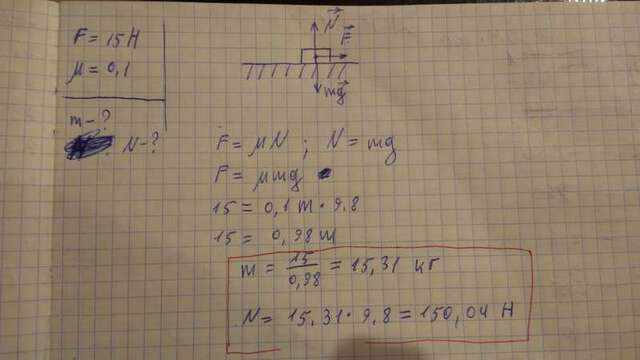 F = 15 Н
μ = 0,1
m - ?
N - ?
N
F
mg
F = μN ; N = mg
F = μmg
15 = 0,1 m · 9.8
15 = 0,98 m
m = 15/0,98 = 15,31 кг
N = 15,31 · 9,8 = 150,04 Н